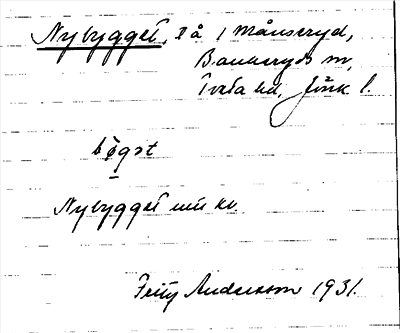 Nybygget, på 1 Månseryd,
Bankeryds sn,
Tveta hd, Jönk l.
bö̱gət
Nybygget
Fritz Anderson 1931.